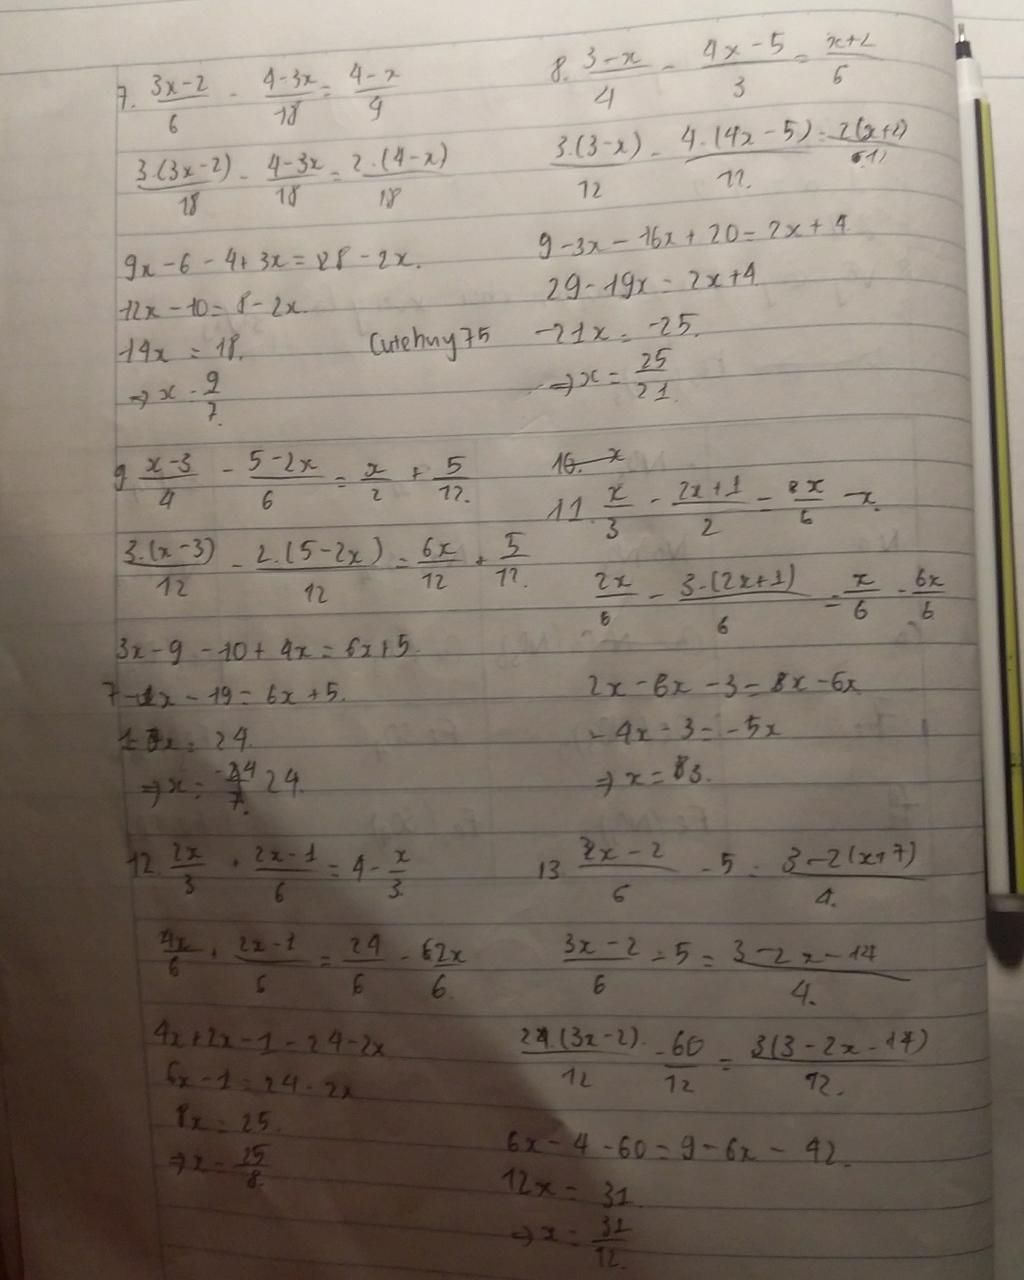 7. (3x-2)/6 - (4-3x)/18 = (4-x)/9
(3.(3x-2))/18 - (4-3x)/18 = (2.(4-x))/18
9x-6-4+3x=8-2x.
12x-10=8-2x.
14x = 18.
⇒ x - 9/7.
Cutehuy75
8. (3-x)/4 - (4x-5)/3 = (x+2)/6
(3.(3-x))/12 - (4.(4x-5))/12. = (2(x+2))/12
9-3x-16x+20=2x+4
29-19x=2x+4
-21x = -25.
⇒x = 25/21.
9 (x-3)/4 - (5-2x)/6 = x/2 + 5/12.
(3.(x-3))/12 - (2.(5-2x))/12 = 6x/12 + 5/12.
3x-9-10+4x=6x+5.
7x-19=6x+5.
x = 24.
⇒x = 24.
10. x
11. x/3 - (2x+1)/2 = x/6 - x.
2x/6 - (3.(2x+1))/6 = x/6 - 6x/6
2x-6x-3=x-6x
-4x-3=-5x
⇒ x = 3.
12. 2x/3 + (2x-1)/6 = 4 - x/3.
4x/6 + (2x-1)/6 = 24/6 - 2x/6.
4x+2x-1=24-2x
6x-1=24-2x
8x = 25.
⇒x = 25/8.
13. (3x-2)/6 - 5 = (3-2(x+7))/4.
(3x-2)/6 - 5 = (3-2x-14)/4.
(2.(3x-2))/12 - 60/12 = (3(3-2x-14))/12.
6x-4-60=9-6x-42.
12x = 31
⇒x = 31/12.